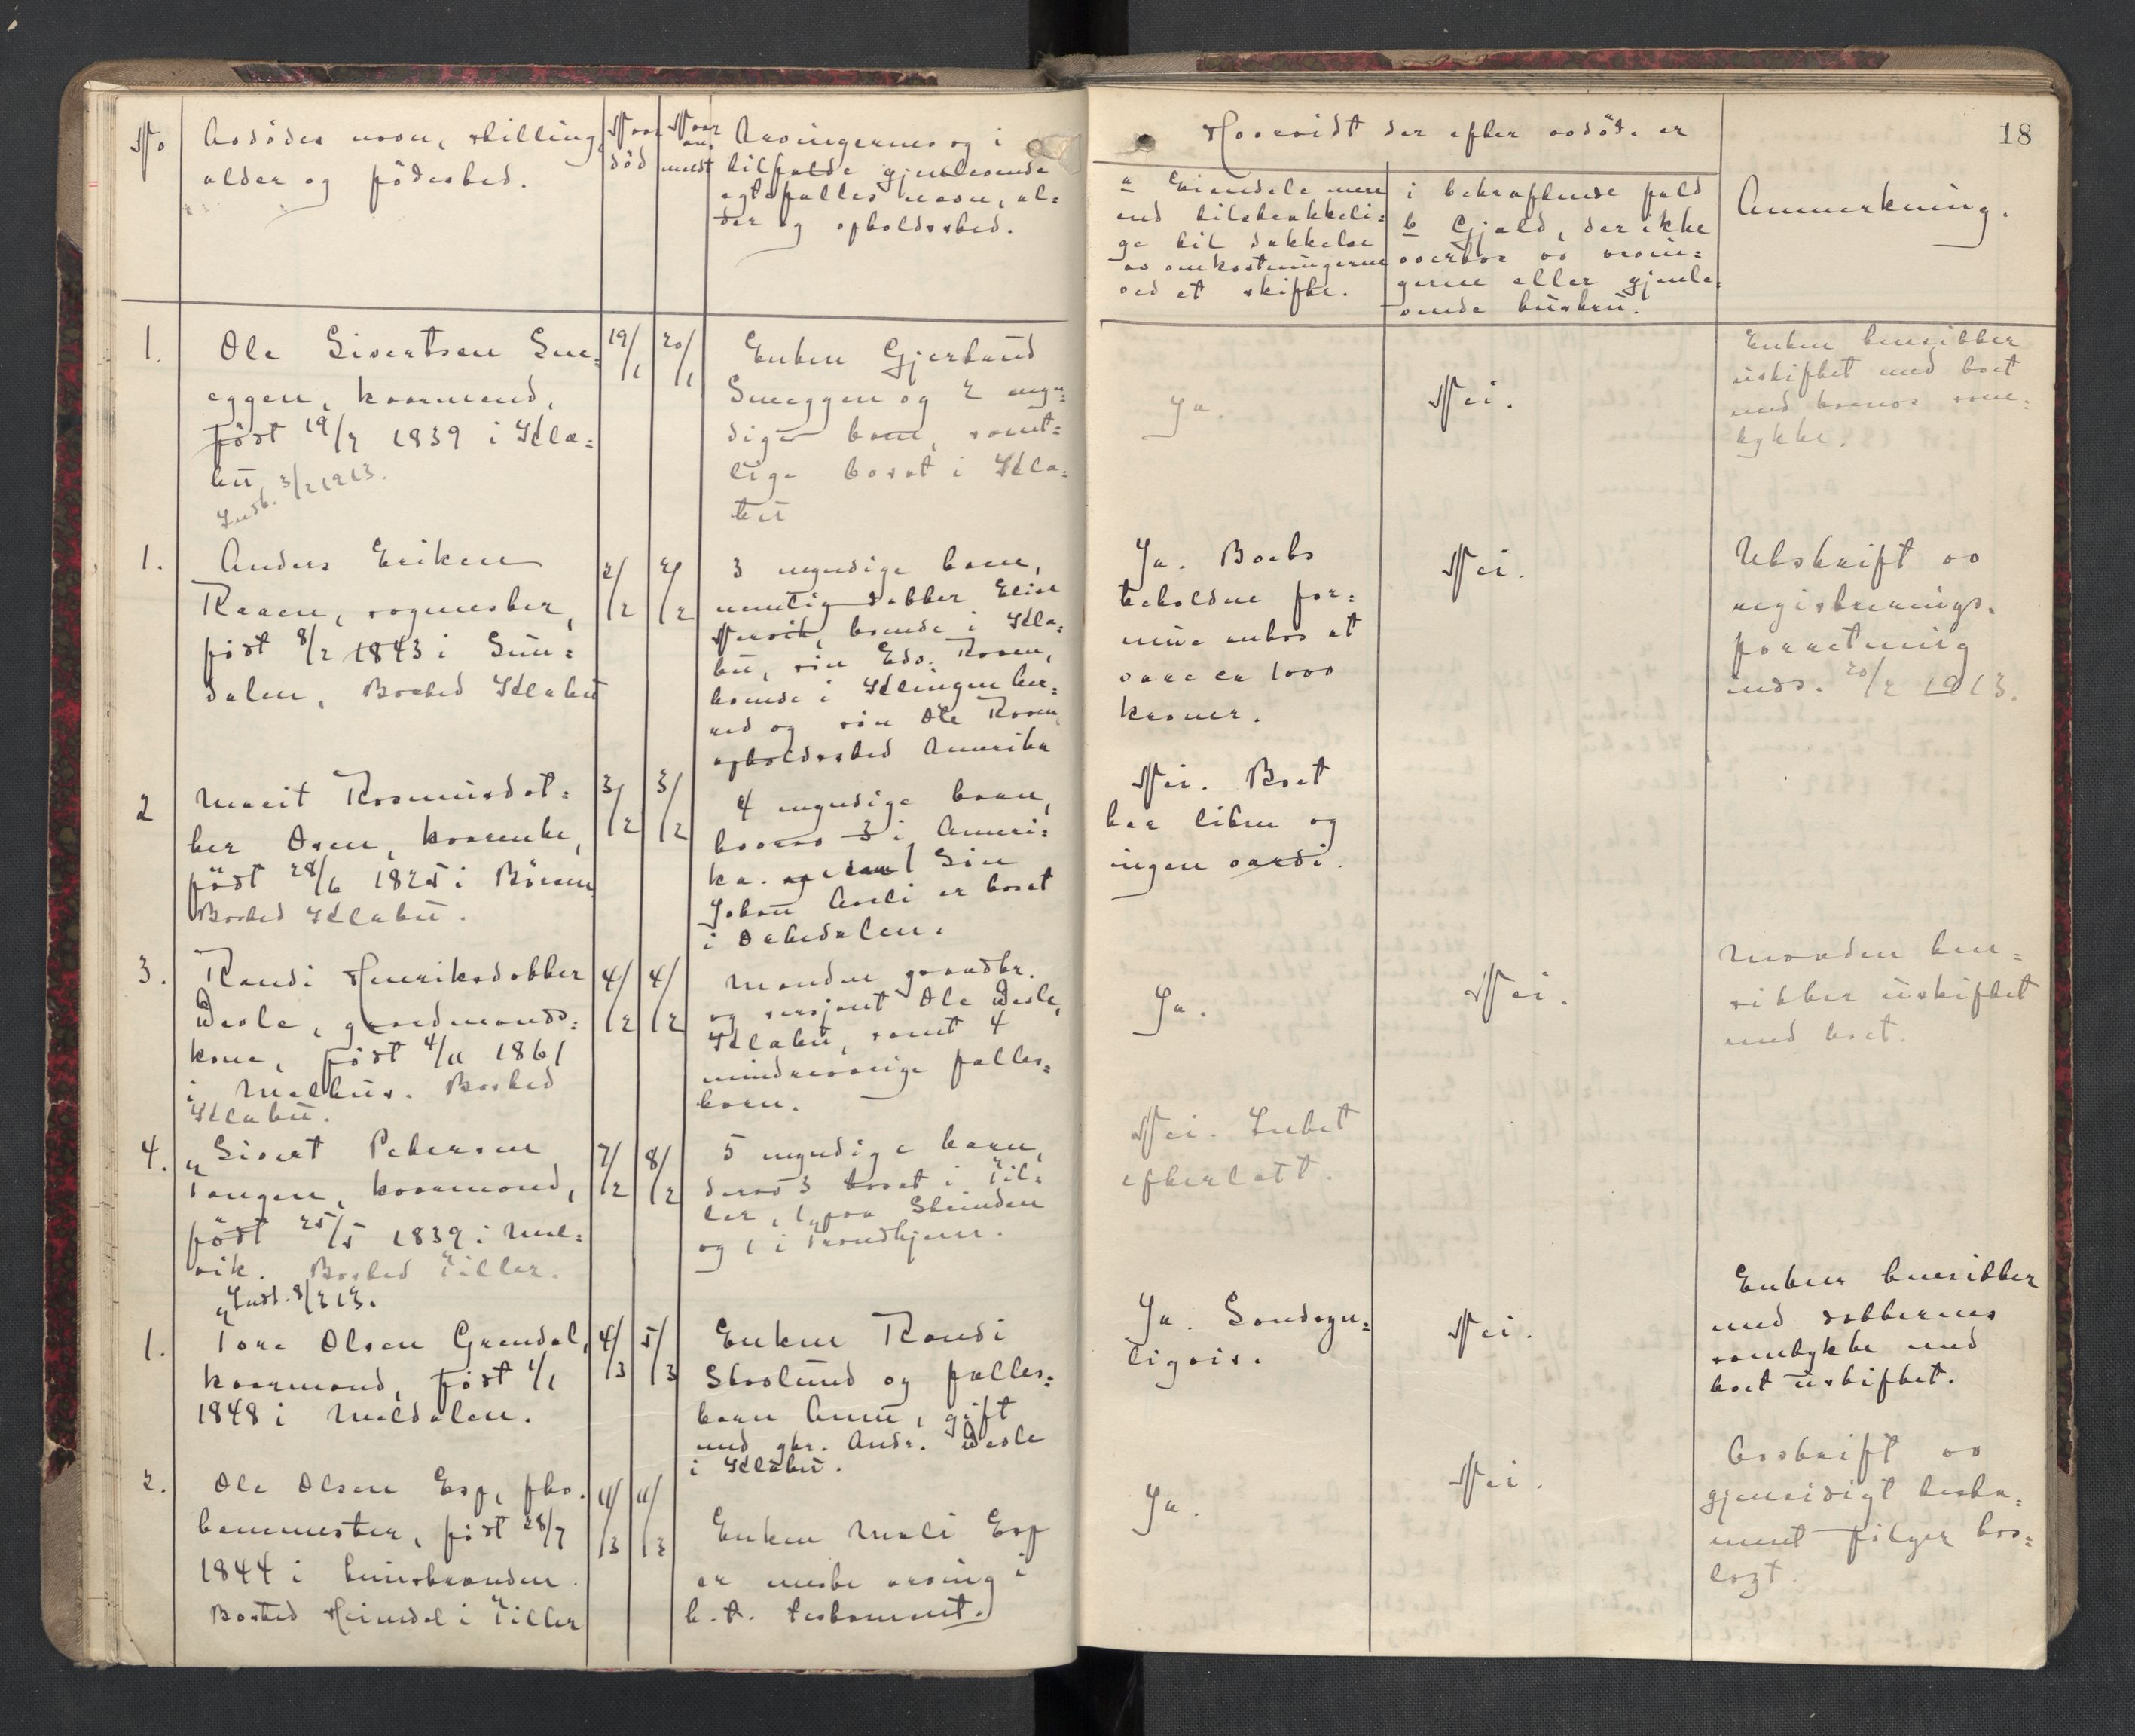 No
Avdødes navn, stilling,
alder og fødested.
Naar
død
Naar
an.
meldt
Arvingernes og i
tilfælde gjenlevende
egtefælles navn, al=
der og opholdssted.
Hvorvidt der efter avdøde er
a Eiendele mere
end tilstrækkeli=
ge til dækkelse
av omkostningerne
ved et skifte.
i bekræftende fald
b Gjæld, der ikke
overtas av arvin=
gerne eller gjenle=
vende hustru.
Anmerkning.
18
1.
Ole Sivertsen Sne=
eggen, kaarmand,
født 19/7 1839 i Kla=
bu
Indb. 3/2 1913.
19/1
20/1
Enken Gjertrud
Sneeggen og 2 myn=
dige barn, samt=
lige bosat i Kla=
bu
Ja.
Nei.
Enken hensitter
uskiftet med boet
med barnas sam=
tykke.
1.
Anders Eriksen
Raaen, vogmester,
født 8/2 1843 i Sun=
dalen, Bosted Klabu
2/2
2/2
3 myndige barn,
nemlig datter Elise
Nervik, boende i Kla=
bu, søn Edv. Raaen,
boende i Klingen her=
red og søn Ole Raaen,
opholdssted Amerika
Ja. Boets
beholdne for=
mue antas at
være ca 1000
kroner.
Nei.
Utskrift av
registrerings.
forretning
inds. 20/2 1913.
2
Marit Rasmusdat=
ter Osen, kaarenke,
født 28/6 1825 i Børsen,
Bosted Klabu.
3/2
3/2
4 myndige barn,
hvorav 3 i Ameri=
ka. 1 Søn
Johan Aseli er bosat
i Orkedalen.
Nei. Boet
har liten og
ingen værdi.
3.
Randi Henriksdatter
Devle, gaardmands=
kone, født 4/11 1861
i Melhus. Bosted
Klabu.
4/2
4/2
Manden gaardbr.
og sersjant Ole Devle,
Klabu, samt 4
mindreaarige fælles=
barn.
Ja.
Nei.
Manden hen=
sitter uskiftet
med boet.
4.
Sivert Petersen
Tangen, kaarmand,
født 25/5 1839 i Mal=
vik. Bosted Tiller.
Indb. 8/3 13.
7/2
8/2
5 myndige barn,
derav 3 bosat i Til=
ler, 1 paa Strinden
og 1 i Trondhjem.
Nei. Intet
efterlatt.
1.
Tore Olsen Grendal,
kaarmand, født 1/1
1848 i Meldalen.
4/3
5/3
Enken Randi
Skoslund og fælles=
barn Anne, gift
med gbr. Andr. Devle
i Klabu.
Ja. Sandsyn=
ligvis.
Nei.
Enken hensitter
med datternes
samtykke med
boet uskiftet.
2.
Ole Olsen Esp, fhv.
banemester, født 28/7
1844 i Leinstranden.
Bosted Heimdal i Tiller
11/3
11/3
Enken Mali Esp
er eneste arving i
h. t. testament.
Ja.
Nei.
Avskrift av
gjensidigt testa=
ment følger ved=
lagt.